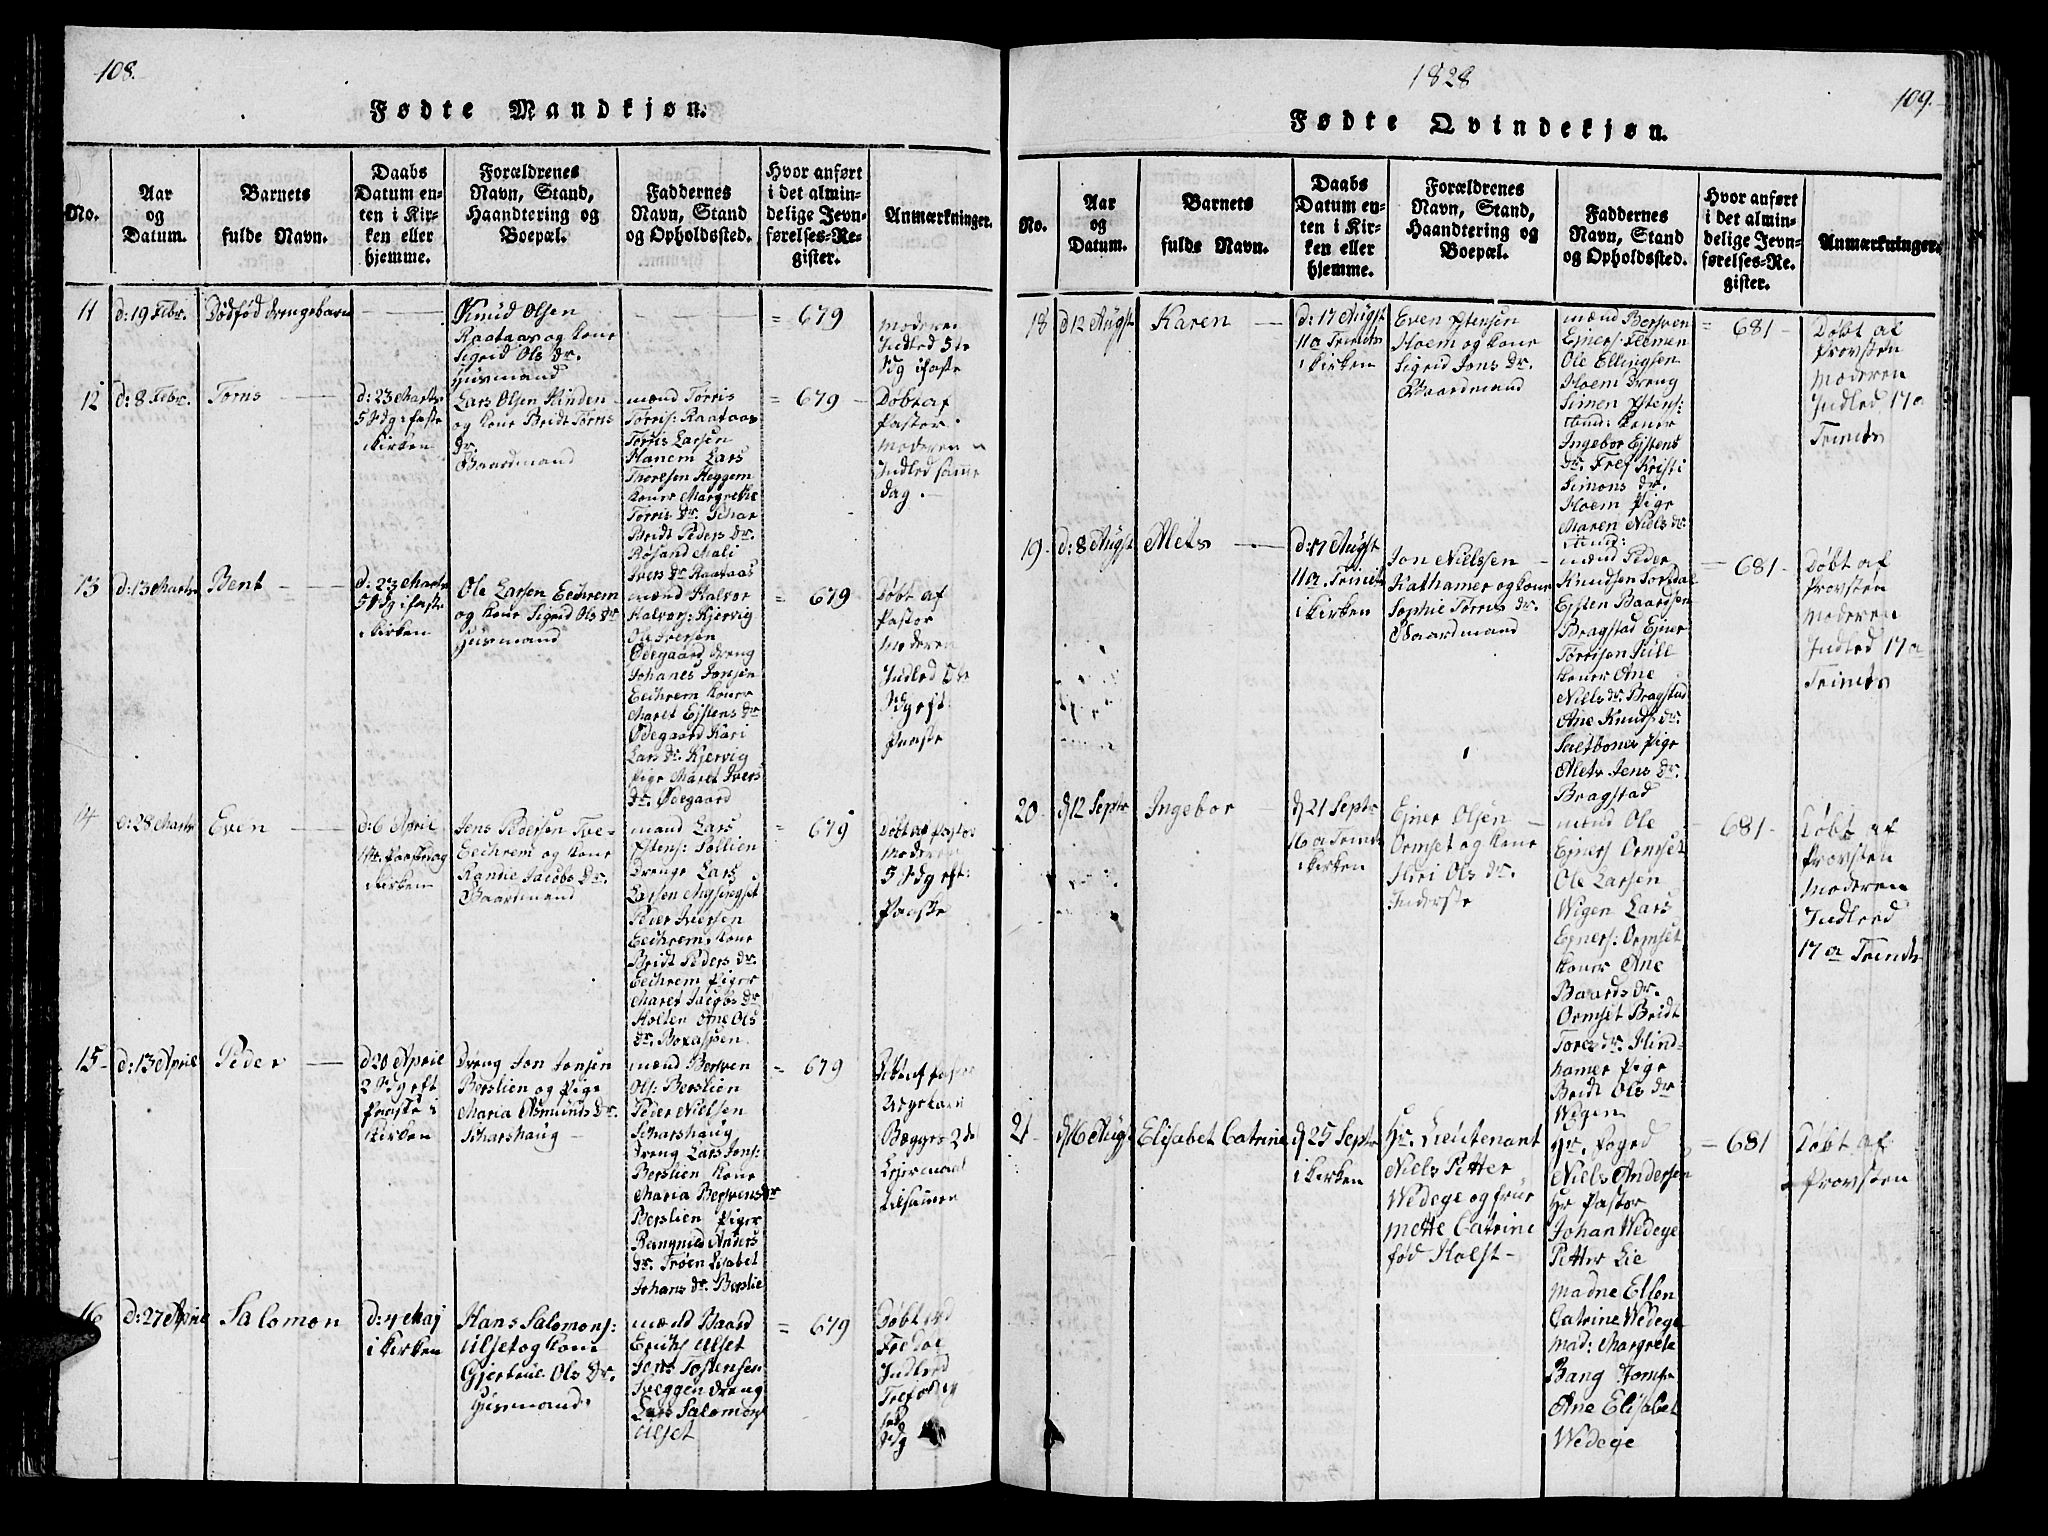 108.
Fødte Mandkjøn.
No.
Aar
og
Datum.
Barnets
fulde Navn.
Daabs
Datum en-
ten i Kir-
ken eller
hjemme.
Forældrenes
Navn, Stand,
Haandtering og
Boepæl.
Faddernes
Navn, Stand
og Opholdssted.
Hvor anført
i det almin-
delige Jevn-
førelses-Re-
gister.
Anmærkninger.
11
d: 19 Febr.
Dødfød drengebarn
Knud Olsen
Raataas og kone
Sigrid Ols Dr.
Huusmand
= 679
Moderen
Indled 5te
Sdg i faste
12
d: 8 Febr.
Torris
d: 23 Marts
5 Sdg i faste
i Kirken
Lars Olsen Hinden
og kone Bridt Torris
Dr.
Gaardmand
mænd Torris
Torris: Raataas
Torris Larsen
Hanem Lars
Thoresen Heggem
koner Margrethe
Torris Dr.
Bridt Peders Dr.
Røsand Mali
Ivers Dr. Raataas
= 679
Døbt af
Pastor
Moderen
Indled samme
dag.
13
d: 13 Marts
Bent
d: 23 Marts
5 Sdg i faste
i Kirken
Ole Larsen Eechrem
og kone Sigrid Ols Dr
Huusmand
mænd Halvor
Halvors: Kjervig
Ole Iversen
Ødegaard dreng
Johanes Jonsen
Eechrem koner
Maret Ejstens Dr
Ødegaard Kari
Lars Dr. Kjervig
Pige Maret Ivers
Dr. Ødegaard
= 679
Døbt af
Pastor
Moderen
Indled 5te
Sdg eft.
Paaske
14
d: 28 Marts
Even
d: 6 April
1te Paaskedag
i Kirken
Jens Pedersen
Eechrem og kone
Randie Jacobs Dr.
Gaardmand
mænd Lars
Estens: Tollien
Drenge Lars
Larsen
Peder Iversen
Eechrem, kone
Bridt Peders Dr.
Eechrem Piger
Maret Jacobs Dr
Holten Ane Ols
Dr. Boxaspen
= 679
Døbt af Pastor
Moderen
5 Sdg eft:
Paaske
15
d: 13 April
Peder
d 20 April
2 Sdg eft
Paaske i
Kirken
Dreng Jon Jonsen
Berslien og Pige
Maria Asmunds Dr.
Scharshaug
mænd Bersven
Ols: Berslien
Peder Nielsen
Scharshaug
dreng Lars Jons:
Berslien kone
Maria Bersvens Dr
Berslien Piger
Rangnild Anders
Dr. Trøen Lisabet
Johans Dr. Berslie
= 679
Døbt af Pastor
Begges 2de
Leiermaal
tilsammen
16
d: 27 April
Salomon
d: 4 Maj
i Kirken
Hans Salomons:
Ulset og kone
Gjertrue Ols Dr.
Huusmand
mænd Baard
Erichs Ulset
Jens Tostensen
Sveggen dreng
Lars Salomons
Ulset
= 679
Døbt
Indled
1828
109.
Fødte Qvindekjøn.
No.
Aar
og
Datum.
Barnets
fulde Navn.
Daabs
Datum en-
ten i Kir-
ken eller
hjemme.
Forældrenes
Navn, Stand,
Haandtering og
Boepæl.
Faddernes
Navn, Stand
og Opholdssted.
Hvor anført
i det almin-
delige Jevn-
førelses-Re-
gister.
Anmærkninger.
18
d 12 Augst
Karen
d: 17 Augst
11 a Trinits
i Kirken
Even Estensen
Hoem og kone
Sigrid Jons Dr.
Gaardmand
mænd Bersven
Ejners:
Ole Ellingsen
Hoem Dreng
Simen Estens:
koner
Ingebor Ejstens
Dr. Kristi
Simons Dr.
Hoem Pige
Maren Niels Dr
= 681
Døbt af
Provsten
Moderen
Indled 17 a
Trinits
19
d: 8 Augst
Mets
d: 17 Augst
11 a Trinit
i Kirken
Jon Nielssen
Kathamer og kone
Sophie Torris Dr.
Gaardmand
mænd Peder
Knudsen Torsdal
Ejsten Baardsen
Bragstad Ejner
Torrisen
koner Ane
Niels Dr. Bragstad
Ane Knuds Dr.
Saltbones Pige
Mets Jens Dr.
Bragstad
681
Døbt af
Provsten
Moderen
Indled 17 a
Trinits
20
d 12 Septr
Ingebor
d 21 Septr
16 a Trinit
i Kirken
Ejner Olsen
Ormset og kone
Ols Dr.
Inderste
mænd Ole
Ejners Ormset
Ole Larsen
Wigen Lars
Ejners: Ormset
koner Ane
Baards Dr.
Ormset Bridt
Tores Dr. Hind-
hamer Pige
Bridt Ols Dr
Wigen
681
Døbt af
Provsten
Moderen
Indled
17 a Trinits
21
d 16 Augt
Elisabet Catrine
d 25 Septr
i Kirken
Hr. Lieutenant
Niels Petter
Wedege og frue
Mette Catrine
fød Holst
Hr. Foged
Niels Andersen
Hr Pastor
Johan Wedege
Petter Lie
Madne Ellen
Catrine Wedege
Mad: Margrete
Bang Jomfr
Ane Elisabet
Wedege
= 681
Døbt af
Provsten